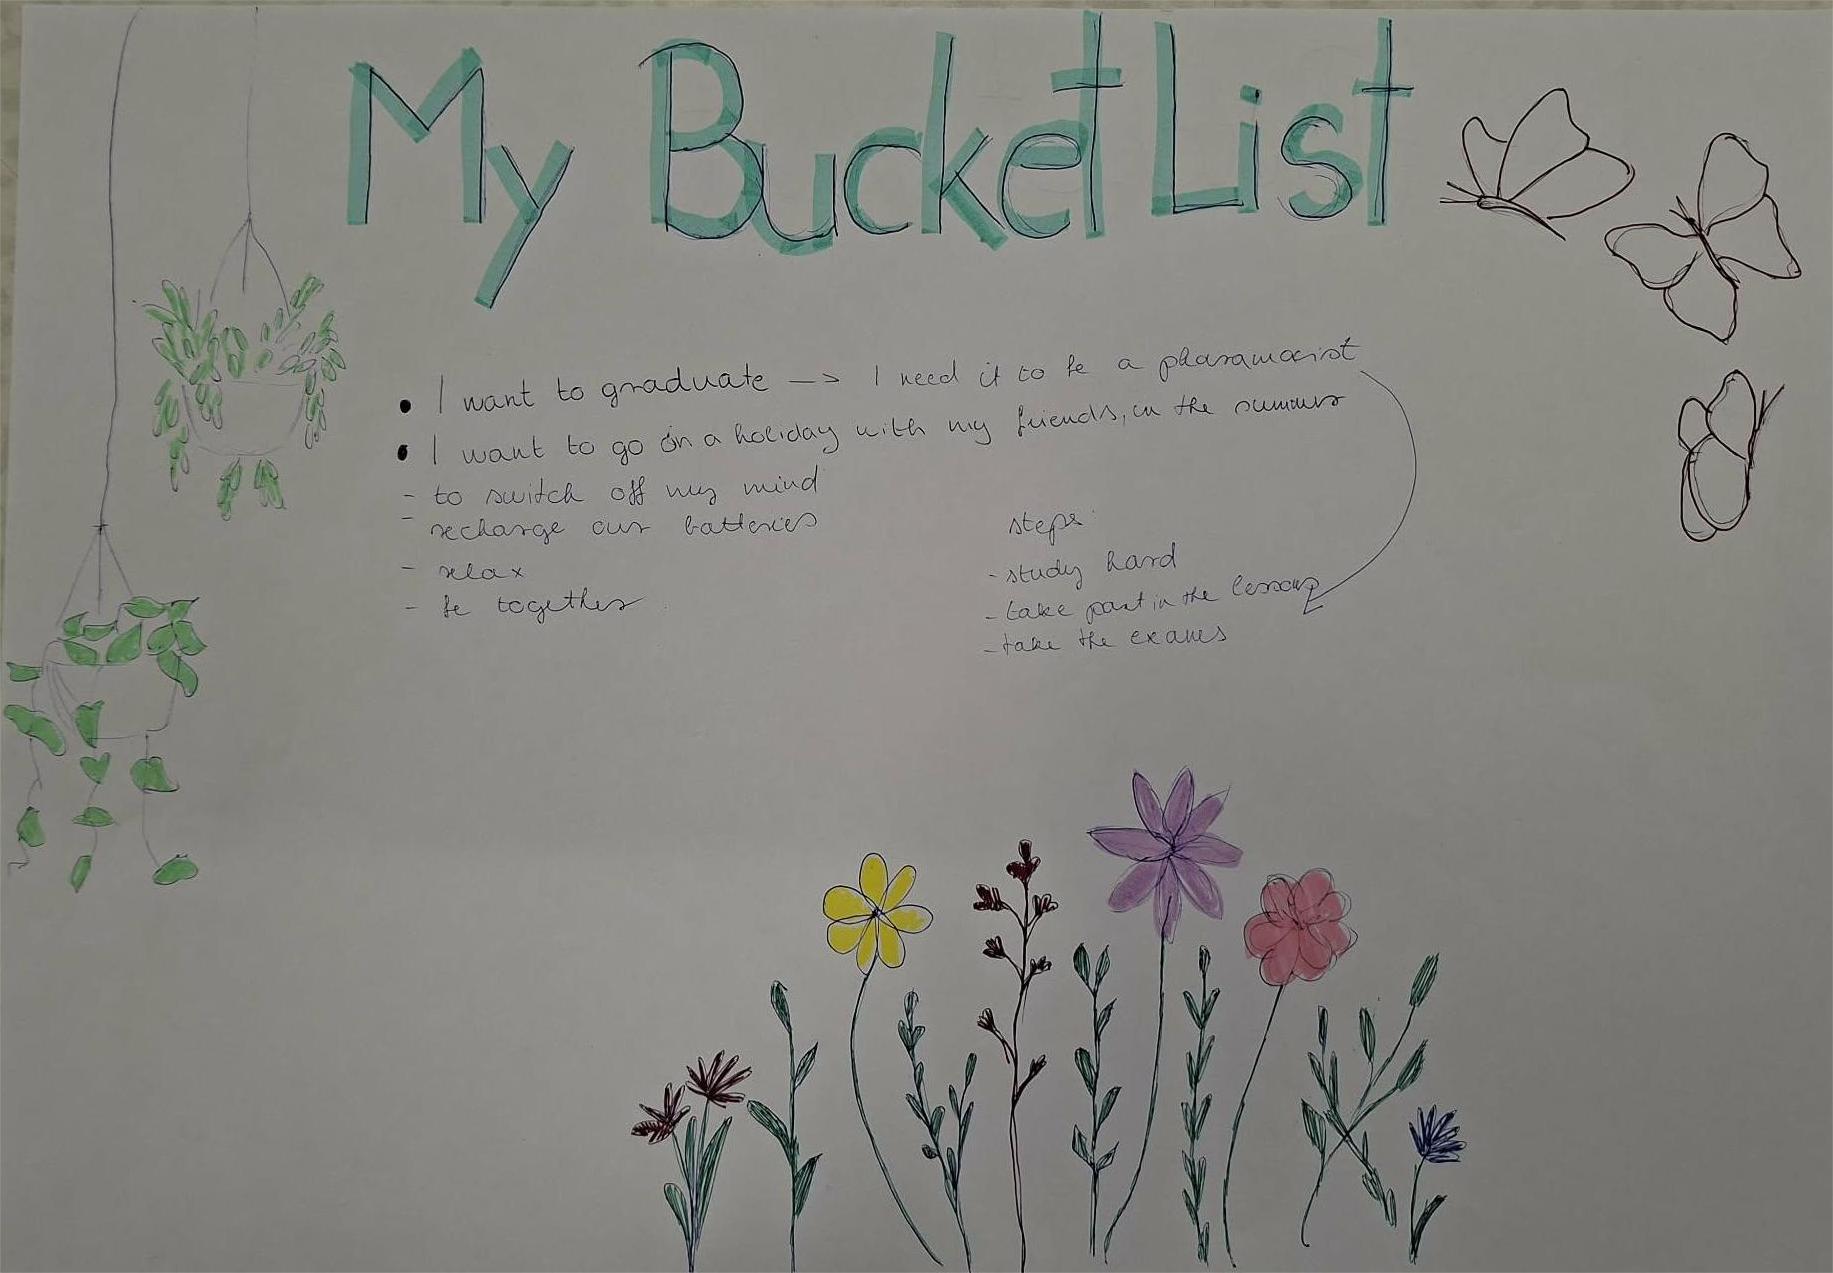 My Bucket List
• I want to graduate –> I need it to be a pharamacist
• I want to go on a holiday with my friends, in the summer
- to switch off my mind
- recharge our batteries
- relax
- be together
steps:
- study hard
- take part in the lessons
- take the exams